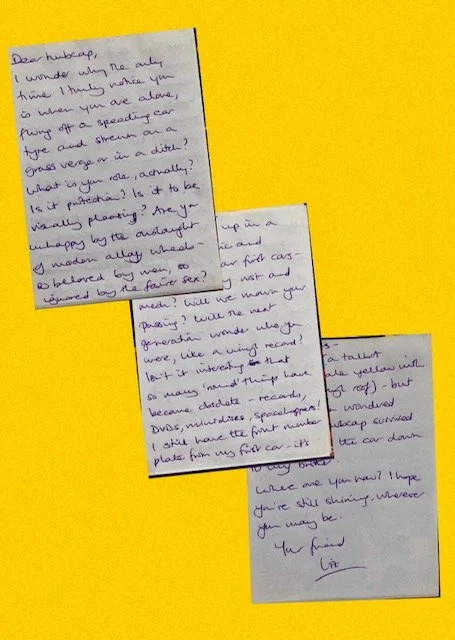 Dear hubcap,
I wonder why the only
time I truly notice you
is when you are alone,
flung off a speeding car
tyre and strewn on a
grass verge or in a ditch?
What is your role, actually?
Is it protection? Is it to be
visually pleasing? Are you
unhappy by the onslaught
of modern alloy wheels -
so beloved by men, so
ignored by the fairer sex?
up in a
and
first cars -
rust and
mesh? Will we mourn your
passing? Will the next
generation wonder who you
were, like a vinyl record?
Isn't it interesting that
so many 'round' things have
become obsolete - records,
DVDs, minidiscs, spacehoppers!
I still have the front number
plate from my first car - it's
a Talbot
yellow with
roof) - but
wondered
survived
the car down
to my
Where are you now? I hope
you're still shining, wherever
you may be.
Your friend
Liz